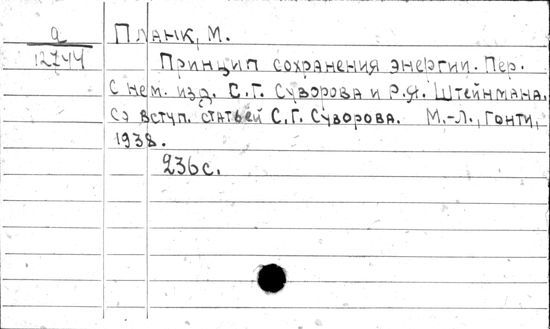 а
12744
Планк, М.
Принцип сохранения энергии. Пер.
с нем. изд. С.Г. Суворова и Р.Я. Штейнмана.
Со вступ. статьей С.Г. Суворова. М.-Л., Гонти,
1938.
236 с.